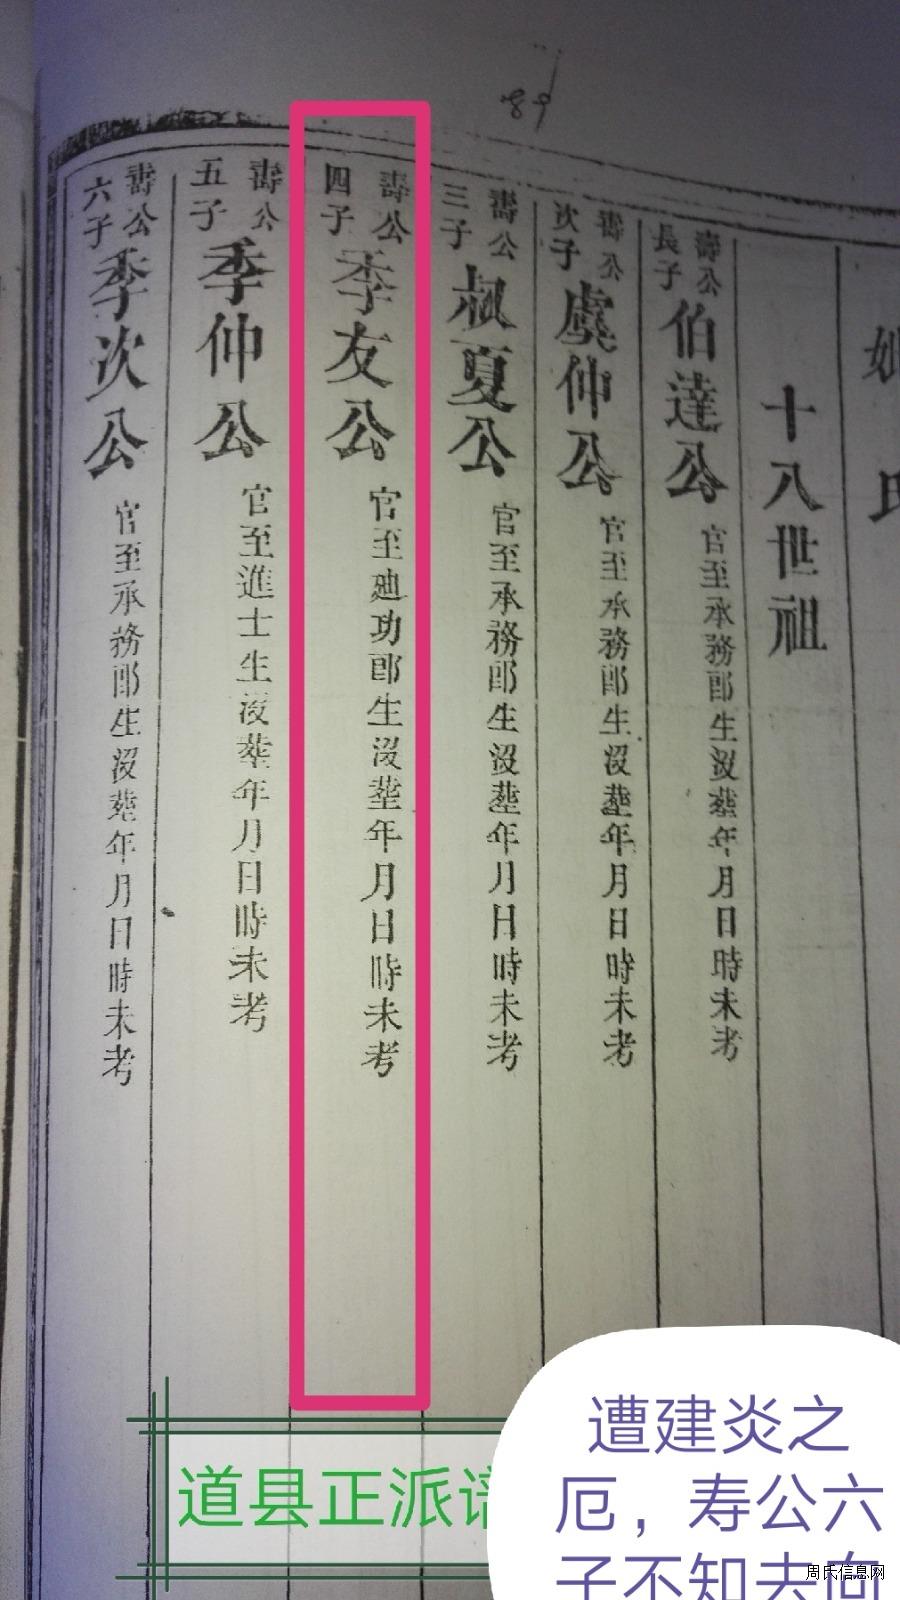 89
十八世祖
壽公長子
伯達公
官至承務郎生沒塟年月日時未考
壽公次子
虞仲公
官至承務郎生沒塟年月日時未考
壽公三子
叔夏公
官至承務郎生沒塟年月日時未考
壽公四子
季友公
官至廸功郎生沒塟年月日時未考
壽公五子
季仲公
官至進士生沒塟年月日時未考
壽公六子
季次公
官至承務郎生沒塟年月日時未考
道县正派谱
遭建炎之
厄，寿公六
子不知去向
周氏信息网